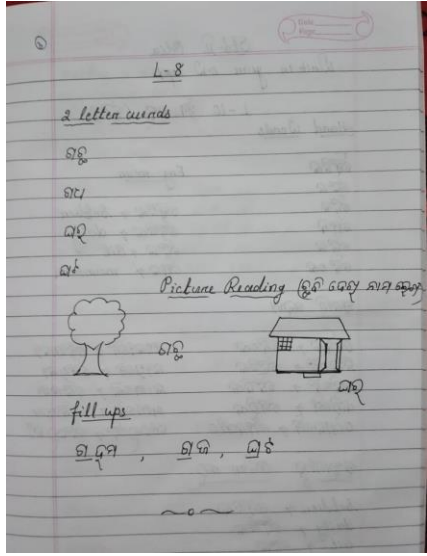 Date
Page
L-8
2 letter words
ଗଛ
ଗଧ
ଘର
ଘଟ
Picture Reading (ଛବି ଦେଖି ନାମ ଲେଖ)
ଗଛ
ଘର
fill ups
ଗଜ, ଘଟ